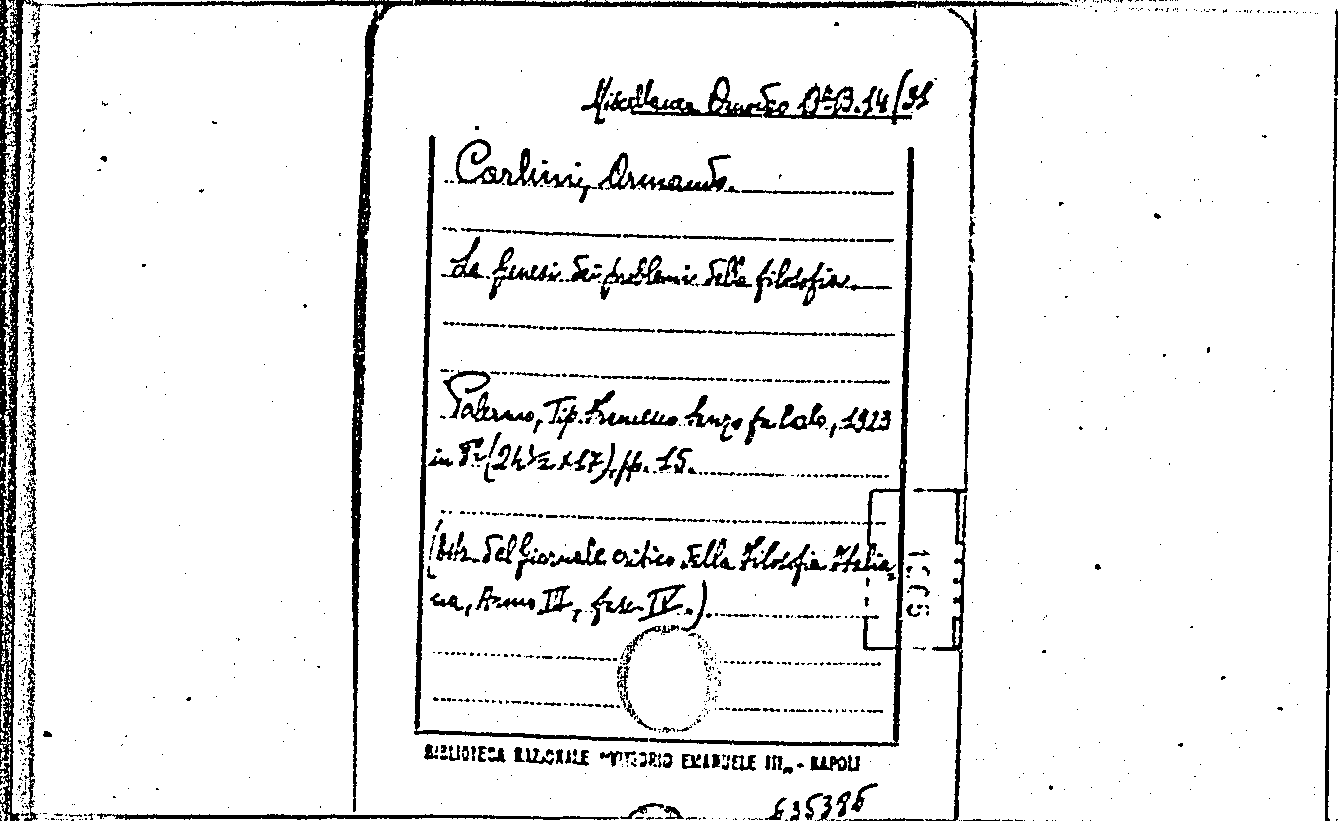 Miscellanea B.14/31
Carlini, Armando.
La genesi dei problemi della filosofia.
Palermo, Tip. Francesco Sanzo fu Carlo, 1923
in 8° (24½ x 17), pp. 15.
(Estr. del Giornale critico della Filosofia Italia-
na, Anno III, fasc. IV.)
BIBLIOTECA NAZIONALE "VITTORIO EMANUELE III„ - NAPOLI
635386